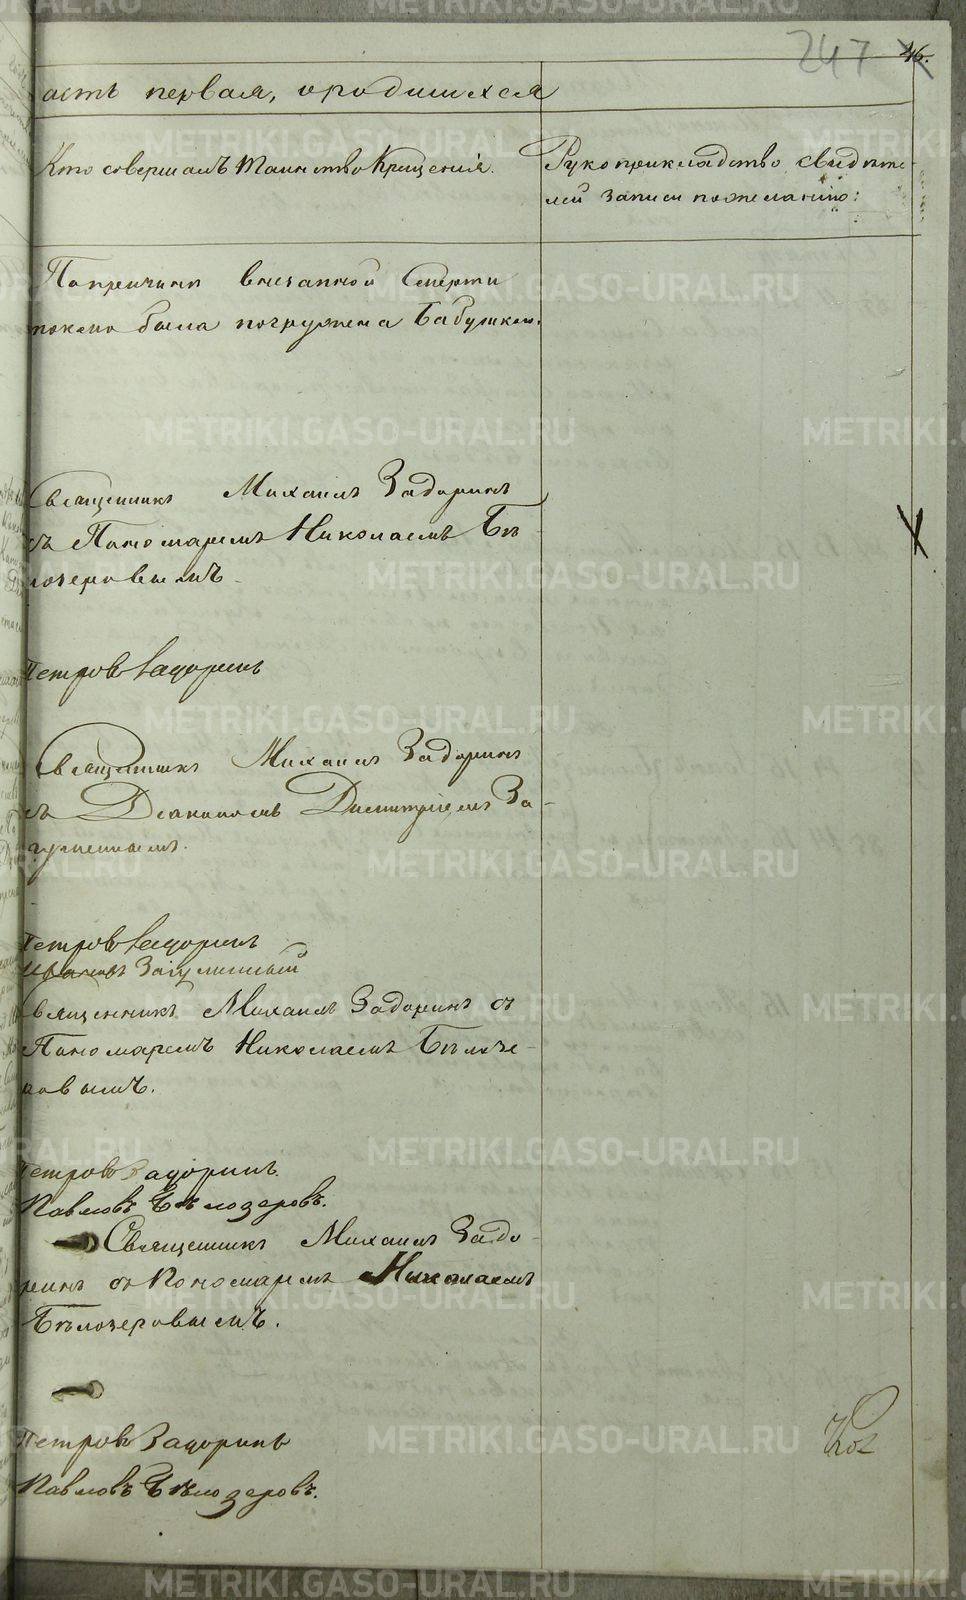 247 46.
асть первая, о родившихся
Кто совершалъ таинство Крещенія.
Рукоприкладство свидѣте-
лей записи по желанію:
По причинѣ внезапной смерти
токмо была погружена бабушкою.
Священникъ Михаилъ Задоринъ
съ Пономаремъ Николаемъ Бѣ-
лозеровымъ.
Петровъ Задоринъ
Священникъ Михаилъ Задоринъ
съ Діакономъ Димитріемъ За-
гуменнымъ.
Петровъ Задоринъ
Ивановъ Загуменный
Священникъ Михаилъ Задоринъ съ
Пономаремъ Николаемъ Бѣлозе-
ровымъ.
Петровъ Задоринъ.
Павловъ Бѣлозеровъ.
Священникъ Михаилъ Задо-
ринъ съ Пономаремъ Николаемъ
Бѣлозеровымъ.
Петровъ Задоринъ
Павловъ Бѣлозеровъ.
METRIKI.GASO-URAL.RU